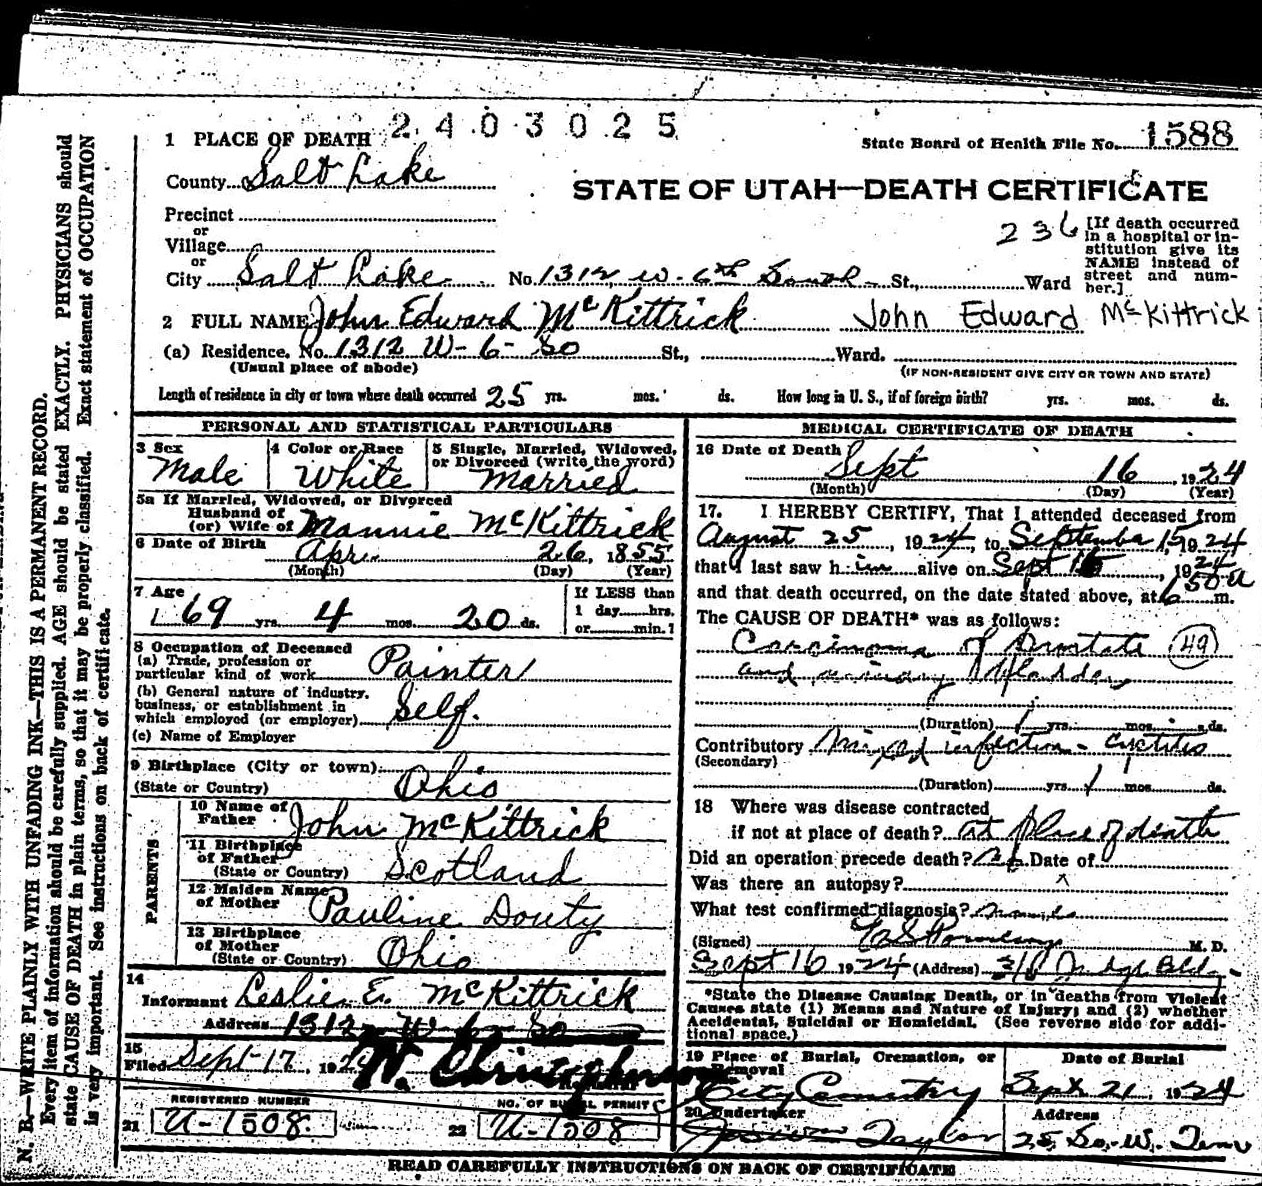 2403025
1 PLACE OF DEATH
State Board of Health File No. 1588
County Salt Lake
STATE OF UTAH—DEATH CERTIFICATE
Precinct
or
Village
or
City Salt Lake No. 1312 W. 6th South St., Ward
236
[If death occurred in a hospital or institution give its NAME instead of street and number.]
2 FULL NAME John Edward McKittrick John Edward McKittrick
(a) Residence. No. 1312 W-6-So St., Ward.
(Usual place of abode) (IF NON-RESIDENT GIVE CITY OR TOWN AND STATE)
Length of residence in city or town where death occurred 25 yrs. mos. ds. How long in U. S., if of foreign birth? yrs. mos. ds.
PERSONAL AND STATISTICAL PARTICULARS
3 Sex Male
4 Color or Race White
5 Single, Married, Widowed, or Divorced (write the word) Married
5a If Married, Widowed, or Divorced
Husband of
(or) Wife of Mannie McKittrick
6 Date of Birth Apr. 26, 1855
(Month) (Day) (Year)
7 Age 69 yrs. 4 mos. 20 ds.
If LESS than
1 day hrs.
or min.?
8 Occupation of Deceased
(a) Trade, profession or
particular kind of work Painter
(b) General nature of industry,
business, or establishment in
which employed (or employer) Self.
(c) Name of Employer
9 Birthplace (City or town)
(State or Country) Ohio
PARENTS
10 Name of
Father John McKittrick
11 Birthplace
of Father
(State or Country) Scotland
12 Maiden Name
of Mother Pauline Douty
13 Birthplace
of Mother
(State or Country) Ohio
14
Informant Leslie E. McKittrick
Address 1312 W 6 So
15
Filed Sept 17, 1924 W. Christopherson
REGISTERED NUMBER
21 U-1508
NO. OF BURIAL PERMIT
22 U-1508
MEDICAL CERTIFICATE OF DEATH
16 Date of Death Sept 16, 1924
(Month) (Day) (Year)
17. I HEREBY CERTIFY, That I attended deceased from
August 25, 1924, to September 15, 1924
that I last saw him alive on Sept 15, 1924
and that death occurred, on the date stated above, at 650 a m.
The CAUSE OF DEATH* was as follows:
Carcinoma of Prostate 49
and urinary bladder
(Duration) 1 yrs. mos. ds.
Contributory Mixed infection - Cystitis
(Secondary)
(Duration) yrs. 1 mos. ds.
18 Where was disease contracted
if not at place of death? at place of death
Did an operation precede death? No Date of
Was there an autopsy?
What test confirmed diagnosis?
(Signed) M. D.
Sept 16 1924 (Address)
*State the Disease Causing Death, or in deaths from Violent
Causes state (1) Means and Nature of Injury; and (2) whether
Accidental, Suicidal or Homicidal. (See reverse side for addi-
tional space.)
19 Place of Burial, Cremation, or
Removal
City Cemetery
Date of Burial
Sept 21, 1924
20 Undertaker
Taylor
Address
25 So. W. Temp
READ CAREFULLY INSTRUCTIONS ON BACK OF CERTIFICATE
N. B.—WRITE PLAINLY WITH UNFADING INK—THIS IS A PERMANENT RECORD.
Every item of information should be carefully supplied. AGE should be stated EXACTLY. PHYSICIANS should
state CAUSE OF DEATH in plain terms, so that it may be properly classified. Exact statement of OCCUPATION
is very important. See instructions on back of certificate.